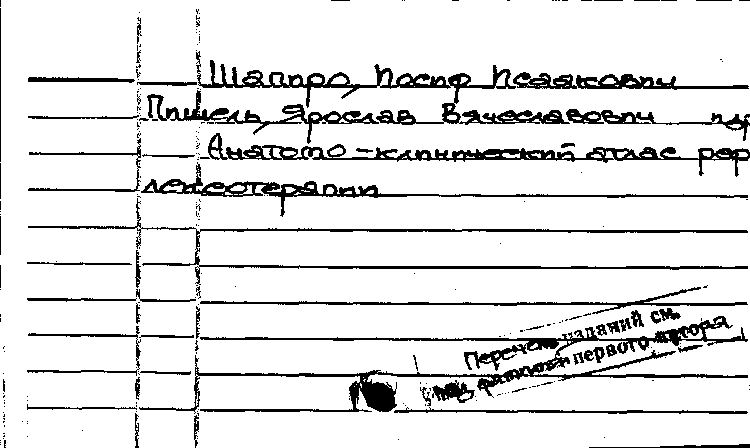 Шапиро, Иосиф Исаакович
Пишель, Ярослав Вячеславович и др
Анатомо-клинический атлас реф
лексотерапии
Перечень изданий см.
под фамилией первого автора